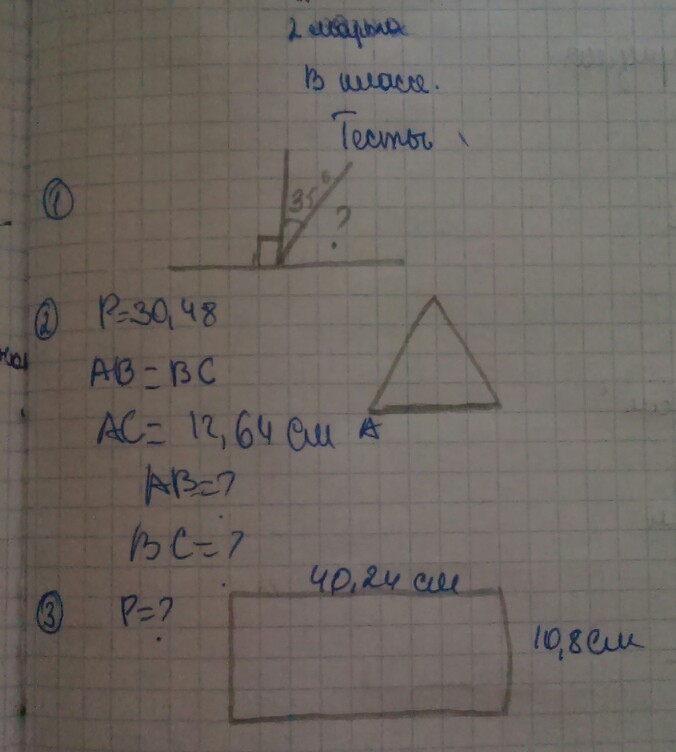 2 марта
В классе.
Тесты
1
35°
?
2 P=30,48
AB=BC
AC= 12,64 см A
AB=?
BC=?
40,24 см
3 P=?
10,8 см